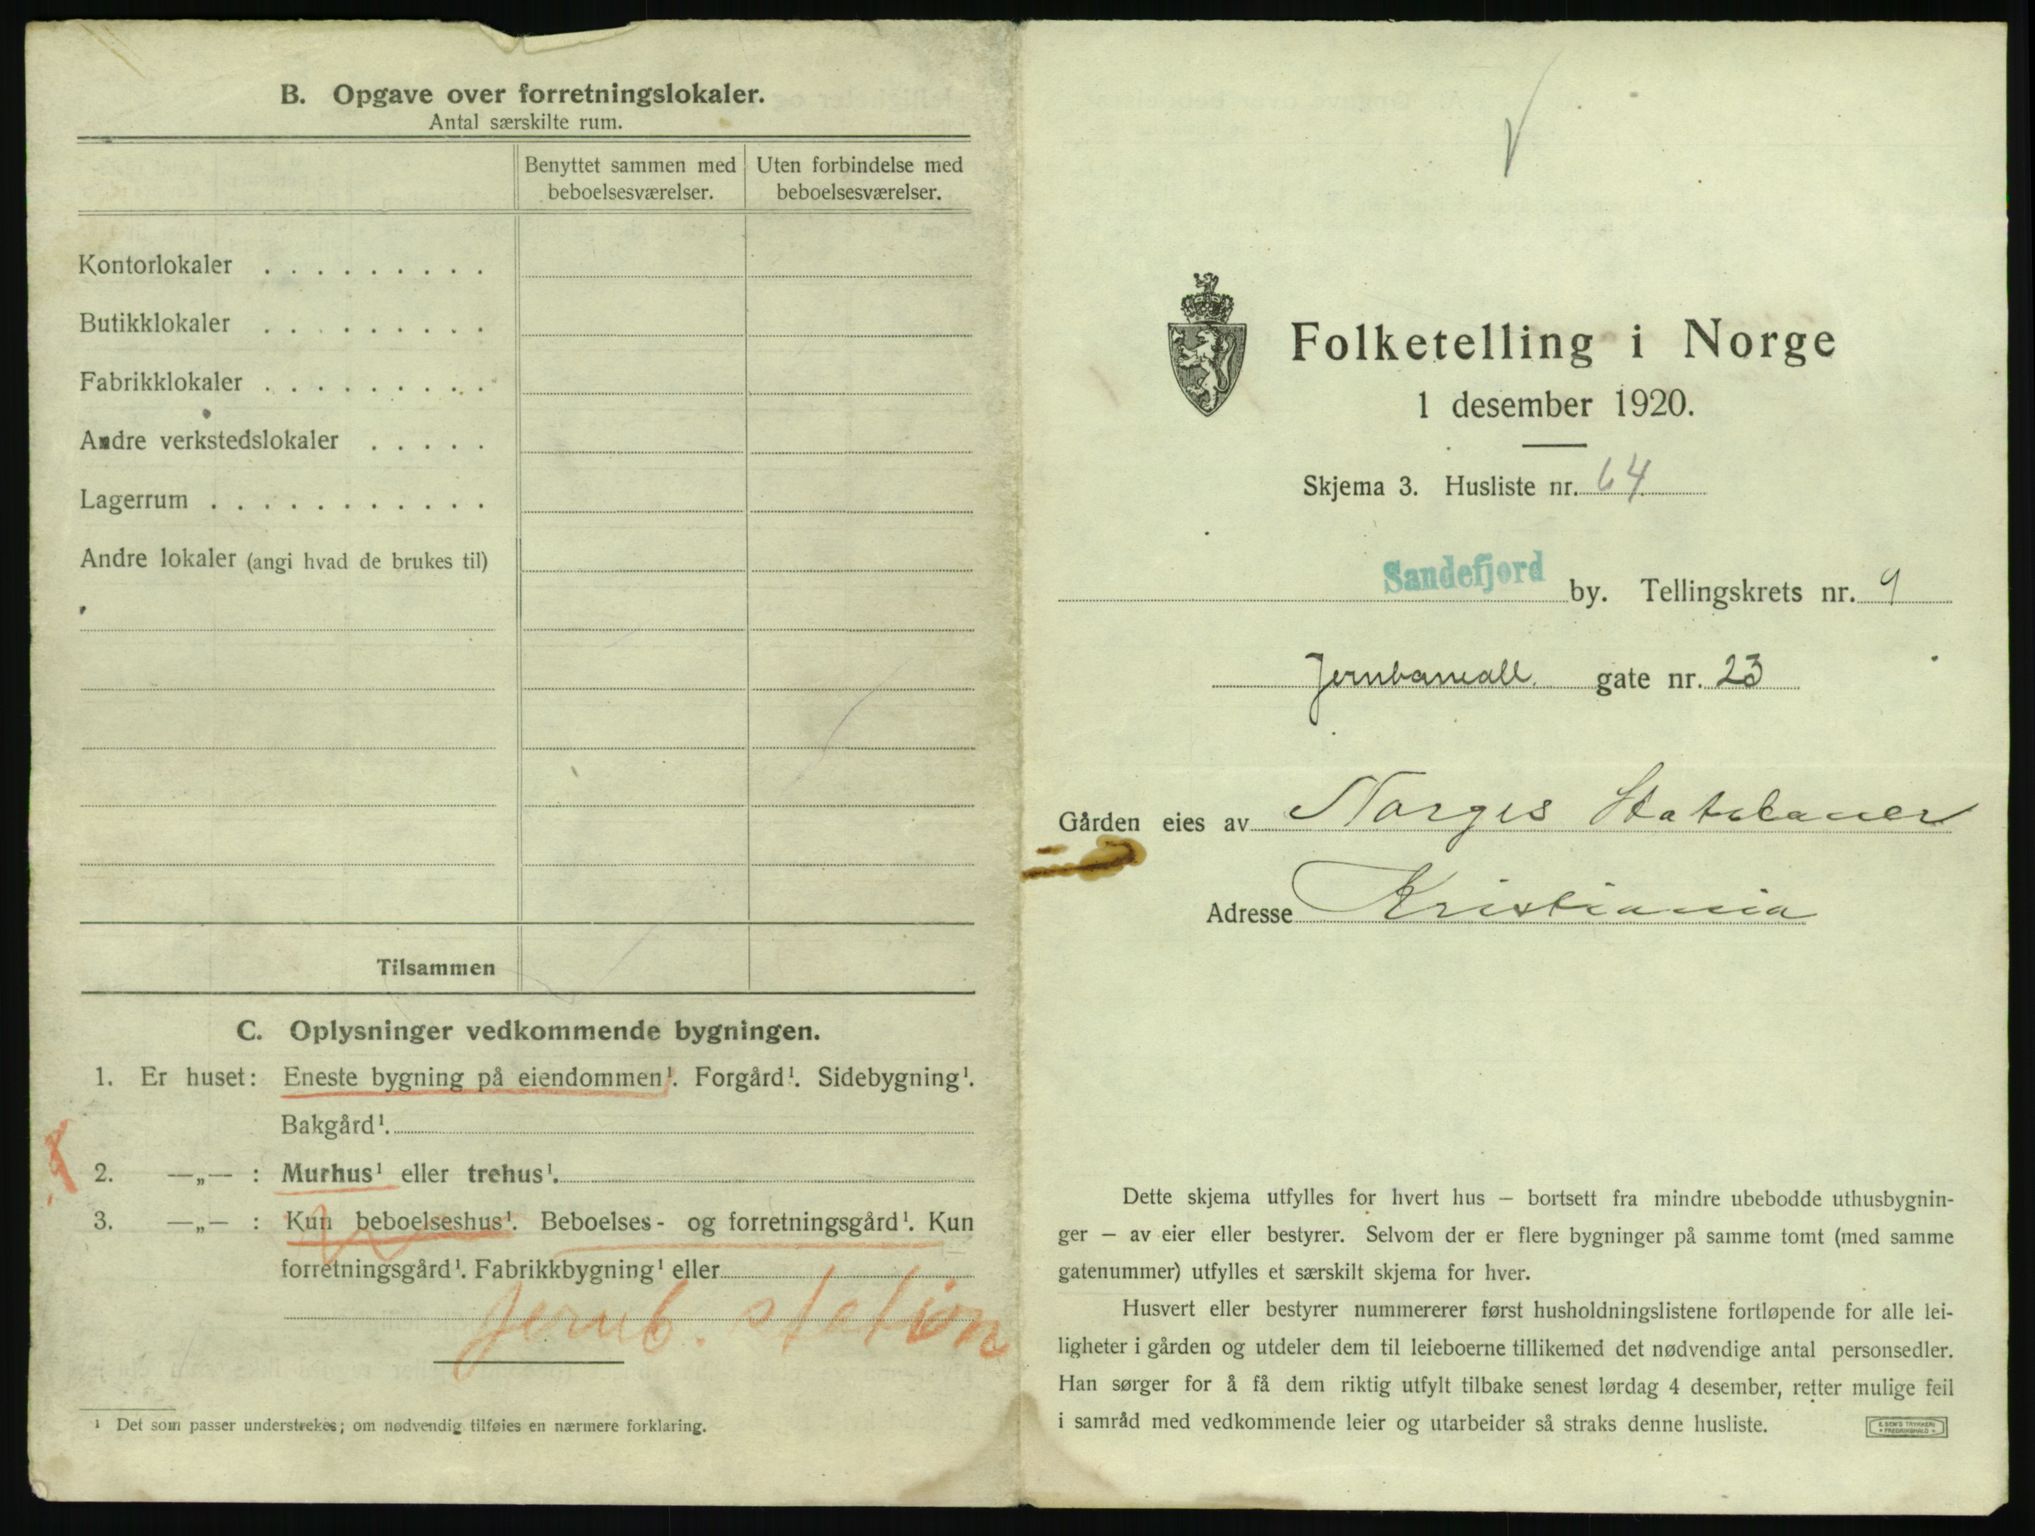 B. Opgave over forretningslokaler.
Antal særskilte rum.
Benyttet sammen med beboelsesværelser.
Uten forbindelse med beboelsesværelser.
Kontorlokaler . . . . . . . . .
Butikklokaler . . . . . . . . .
Fabrikklokaler . . . . . . . . .
Andre verkstedslokaler . . . . .
Lagerrum . . . . . . . . . . .
Andre lokaler (angi hvad de brukes til)
Tilsammen
C. Oplysninger vedkommende bygningen.
1. Er huset: Eneste bygning på eiendommen¹. Forgård¹. Sidebygning¹.
Bakgård¹.
2. —„— : Murhus¹ eller trehus¹.
3. —„— : Kun beboelseshus¹. Beboelses- og forretningsgård¹. Kun
forretningsgård¹. Fabrikkbygning¹ eller
Jernb. station
¹ Det som passer understrekes; om nødvendig tilføies en nærmere forklaring.
Folketelling i Norge
1 desember 1920.
Skjema 3. Husliste nr. 64
Sandefjord by. Tellingskrets nr. 9
Jernbaneall. gate nr. 23
Gården eies av Norges Statsbaner
Adresse Kristiania
Dette skjema utfylles for hvert hus — bortsett fra mindre ubebodde uthusbygnin-
ger — av eier eller bestyrer. Selvom der er flere bygninger på samme tomt (med samme
gatenummer) utfylles et særskilt skjema for hver.
Husvert eller bestyrer nummererer først husholdningslistene fortløpende for alle lei-
ligheter i gården og utdeler dem til leieboerne tillikemed det nødvendige antal personsedler.
Han sørger for å få dem riktig utfylt tilbake senest lørdag 4 desember, retter mulige feil
i samråd med vedkommende leier og utarbeider så straks denne husliste.
E. SEM'S TRYKKERI
FREDRIKSHALD